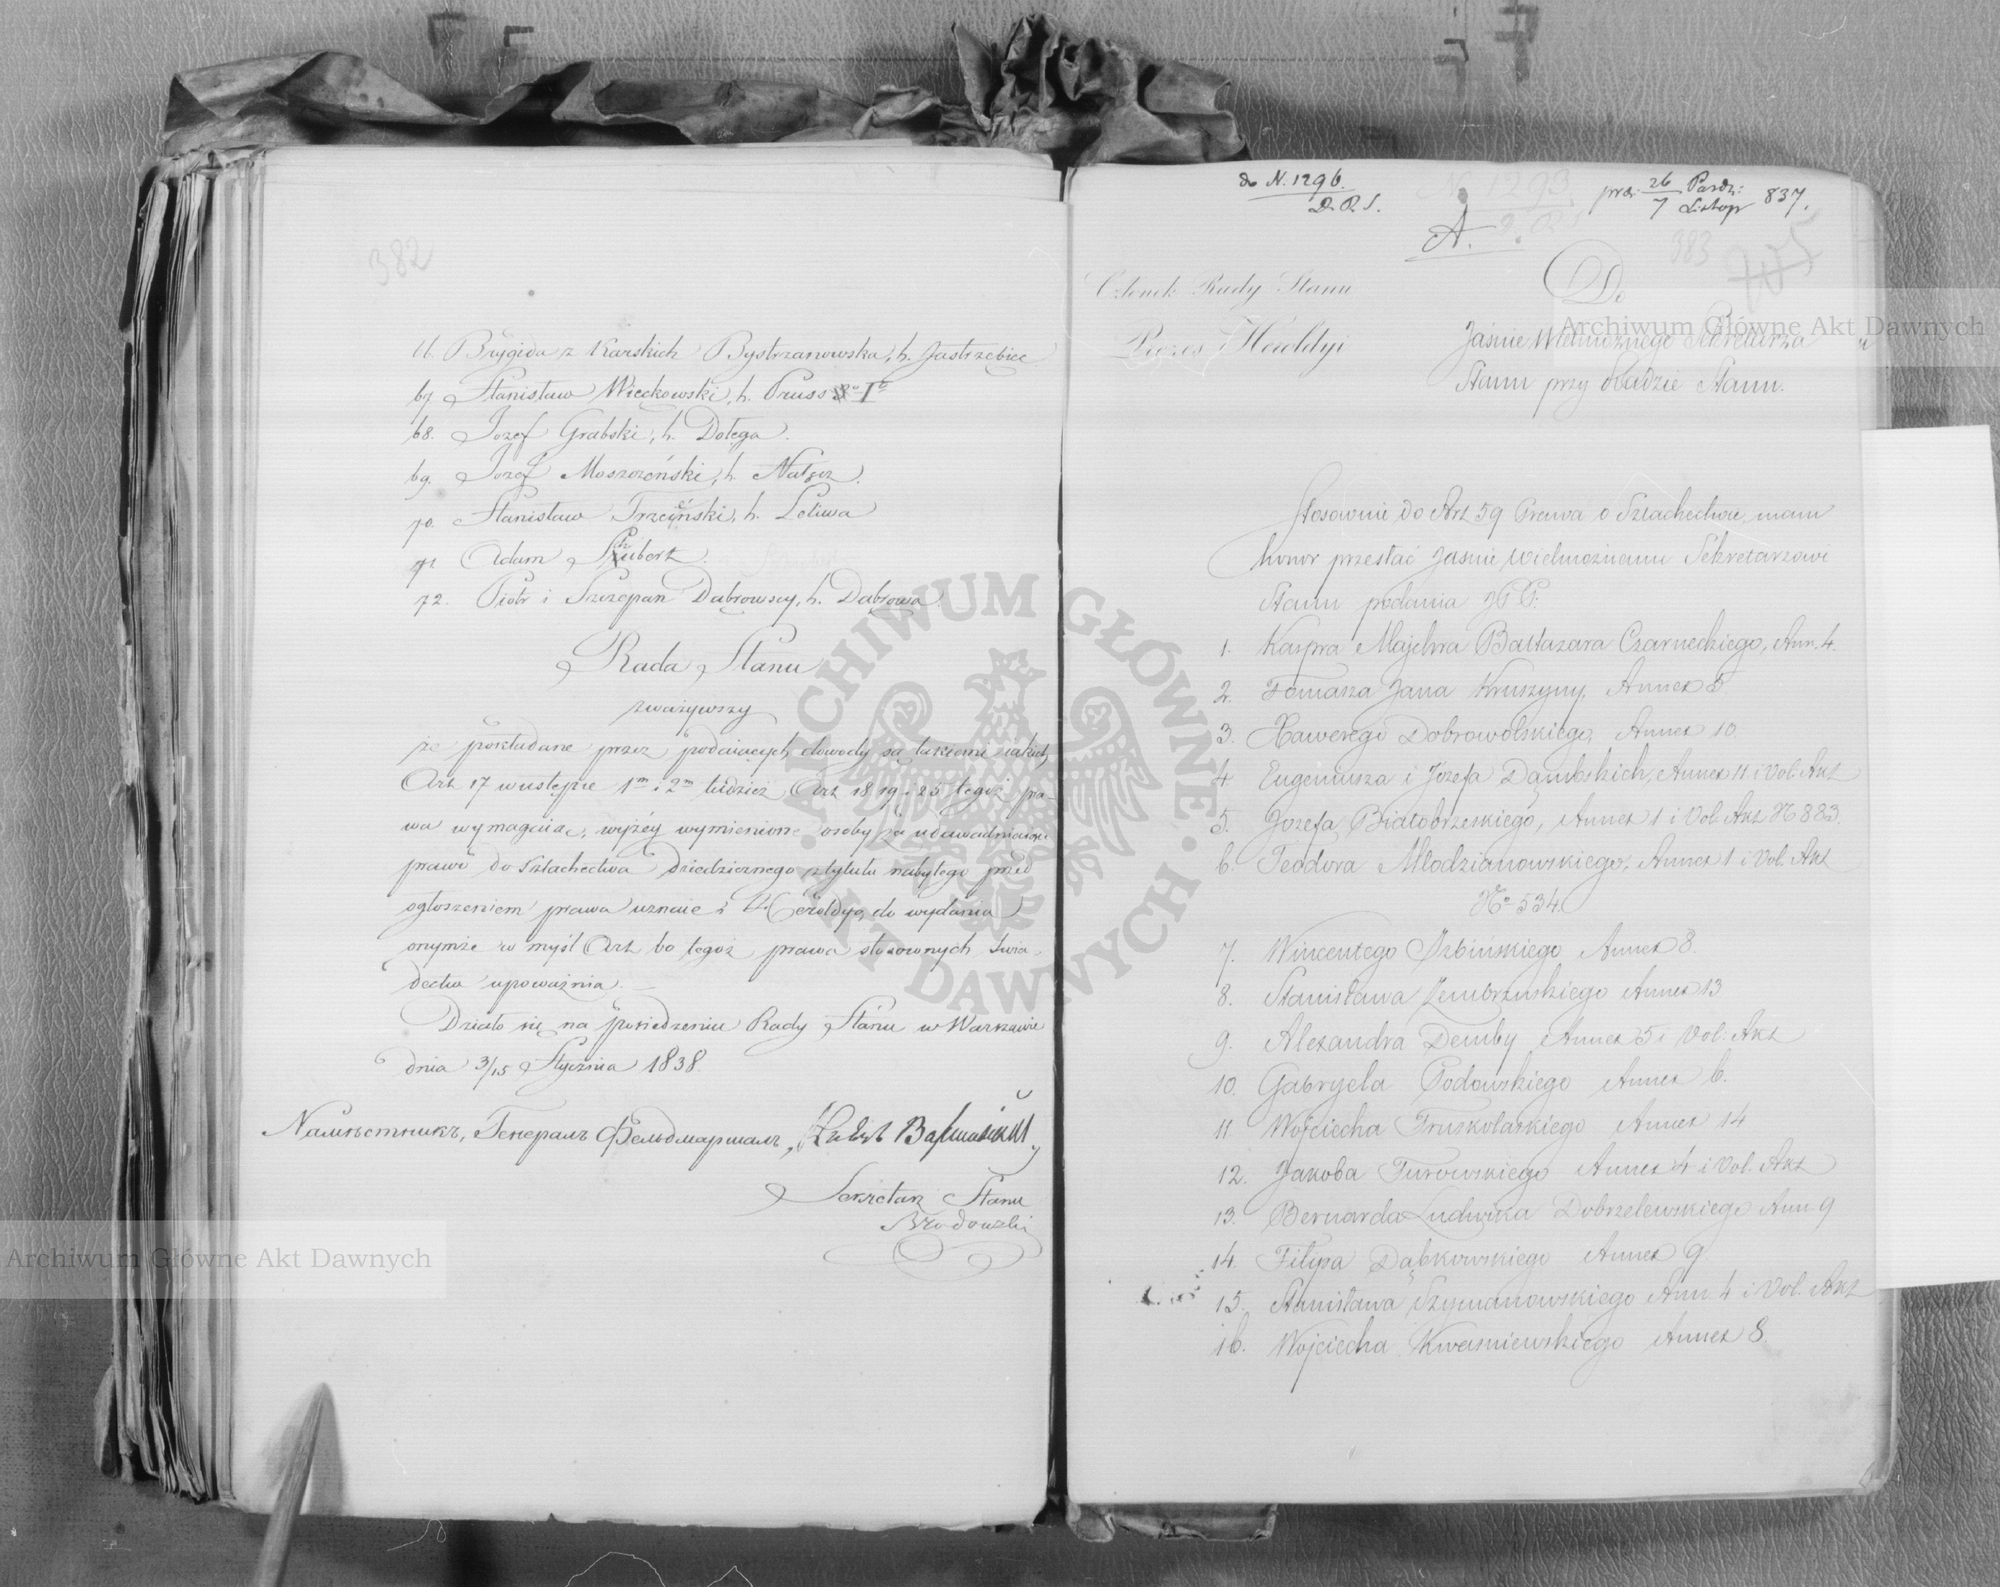 382
66. Brygida z Karskich Bystrzanowska, h. Jastrzębiec
67. Stanisław Więckowski, h. Pruss 1o
68. Jozef Grabski, h. Dołęga.
69. Jozef Moszczeński, h. Nałęcz.
70. Stanisław Trzciński, h. Leliwa
71. Adam Szubert.
72. Piotr i Szczepan Dąbrowscy, h. Dąbrowa
Rada Stanu
zważywszy
że pokładane przez podaiących dowody są takiemi iakich
Art 17 w ustępie 1m i 2m tudzież Art 18 19 i 25 tegoż pra-
wa wymagaią, wyżéy wymienione osoby za udowadniaiące
prawo do Szlachectwa dziedzicznego z tytułu nabytego przed
ogłoszeniem prawa uznaie i Heroldyą do wydania
onymże w myśl Art 60 tegoż prawa stosownych świa-
dectw upoważnia. —
Działo się na posiedzeniu Rady Stanu w Warszawie
dnia 3/15 Stycznia 1838.
Намѣстникъ, Генералъ Фельдмаршалъ,
Sekretarz Stanu
do N. 1296.
D. R. S.
N. 1293
A.
prze: 26/7 Paźdz:/Listop 837.
383
Członek Rady Stanu
Prezes Heroldyi
Do
Jaśnie Wielmożnego Sekretarza
Stanu przy Radzie Stanu.
Stosownie do Art 59 Prawa o Szlachectwie, mam
honor przesłać Jaśnie Wielmożnemu Sekretarzowi
Stanu podania JPP.
1. Kaspra Majchra Baltazara Czarneckiego, Ann. 4.
2. Tomasza Jana Kruszyny, Annex 5
3. Xawerego Dobrowolskiego, Annex 10
4 Eugeniusza i Józefa Dąmbskich, Annex 11 i Vol. Akt
5. Jozefa Białobrzeskiego, Annex 1 i Vol. Akt N 883.
6. Teodora Młodzianowskiego, Annex 1 i Vol. Akt
No 534.
7. Wincentego Izbińskiego Annex 8.
8. Stanisława Zembrzuskiego Annex 13
9. Alexandra Demby Annex 5 i Vol. Akt
10. Gabryela Podowskiego Annex 6.
11 Wojciecha Truskolaskiego Annex 14
12. Jakoba Turowskiego Annex 4 i Vol. Akt
13. Bernarda Ludwika Dobrzelewskiego Ann 9
14. Filipa Dąbkowskiego Annex 9.
15. Stanisława Szymanowskiego Ann. 4 i Vol. Akt
16. Wojciecha Kwasniewskiego Annex 8.
Archiwum Główne Akt Dawnych
Archiwum Główne Akt Dawnych
ARCHIWUM GŁÓWNE · AKT DAWNYCH ·